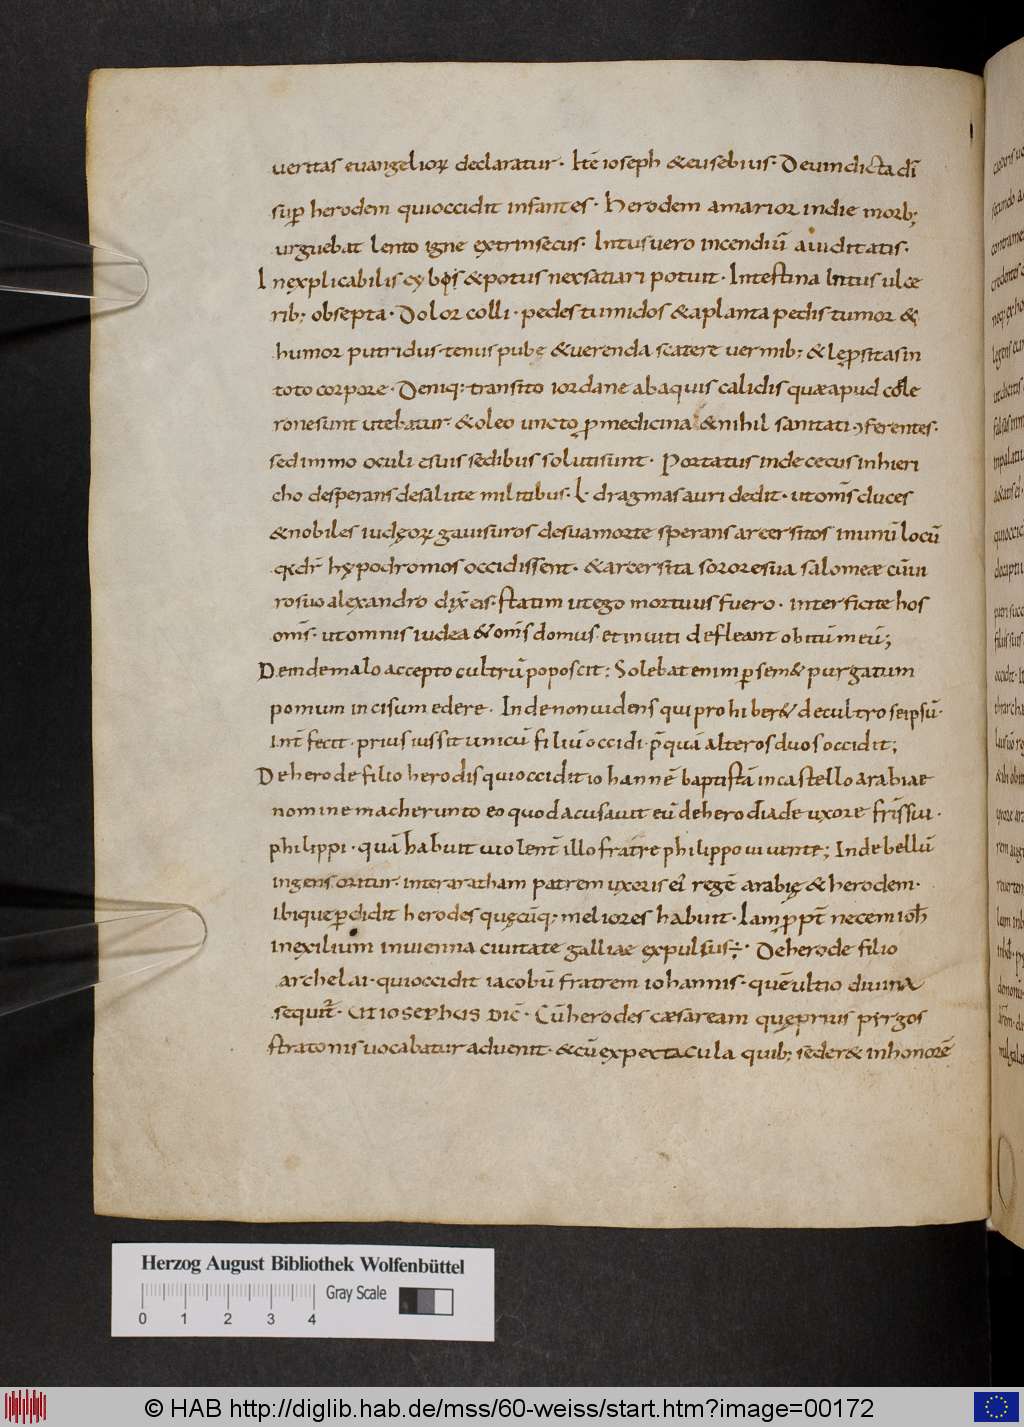 ueritas euangelioꝝ declaratur· Itē ioseph &eusebius· Deuindicta dī
suꝑ herodem quioccidit infantes· herodem amarior indie morb;
urguebat lento igne extrinsecus· Intusuero incendiū auiditatis·
Inexplicabilis cybos &potus nexsatiari potuit· Intestina Intus ulce
rib; obsepta· Dolor colli· pedes tumidos &aplanta pedis tumor &
humor putridus·tenus pube &uerenda scatere uermib; & lęprsitasin
toto corpore· Deniq: transito iordane abaquis calidis quæapud colle
ronesunt utebatur· &oleo uncto ꝓmedicina &nihil sanitati ↄferentes·
sedimmo oculi esuis sedibus solutisunt· Portatus inde cecus inhieri
cho desperans desalute militibus· L· dragmas auri dedit· utom̄s duces
&nobiles iudęoꝝ gauisuros desuamorte sperans arcersitos inunū locū
qđr hypodromos occidissent· &arcersita sororesua salomeæ cūui
rosuo alexandro dix̄ eis· statim utego mortuus fuero· interficite hos
om̄s· utomnis iudea &om̄s domus· etinuiti defleant obitūmeū;
Deinde malo accepto cultrū poposcit: Solebat enim ꝑ sem& purgatum
pomum incisum edere· Inde non uidens qui prohiber& decultro seipsū·
Int̄ fecit· prius iussit unicū filiū occidi· p̄quā alteros duos occidit;
Deherode filio herodis quioccidit iohannē baptistā incastello arabiae
nomine macherunto eo quod acusauit eū deherodiade uxore fr̄is sui·
philippi· quā habuit uiolent̄ illo fratre philippo uiuente; Inde bellū
ingens oritur interaratham patrem uxoris ei' regē arabię & herodem·
ibique ꝑdidit herodes quęcūq; meliores habuit· Iam ꝓpt̄ necem ioh̄
inexilium inuienna ciuitate galliae expulsus÷· Deherode filio
archelai· quioccidit iacobū fratrem iohannis· quē ultio diuina
sequit̄· Ut iosephus dic̄· Cū herodes cæsaream quęprius pyrgos
stratonis uocabatur aduenit· &cū expextacula quib; seder& inhonorē
Herzog August Bibliothek Wolfenbüttel
Gray Scale
0 1 2 3 4
© HAB http://diglib.hab.de/mss/60-weiss/start.htm?image=00172